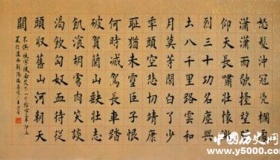 怒髮沖冠凭欄處
瀟瀟雨歇抬望眼
仰天長嘯壯懷激
烈三十功名塵與
土八千里路雲和
月莫等閑白了少
年頭空悲切靖康
耻猶未雪臣子恨
何時滅駕長車踏
破賀蘭山缺壯志
飢餐胡虜肉笑談
渴飲匈奴血待從
頭收拾舊山河朝天
闕
中国历史网